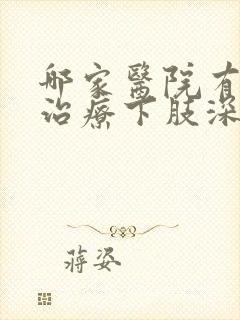 邮家醫院有
治療下肢深
蔣姿